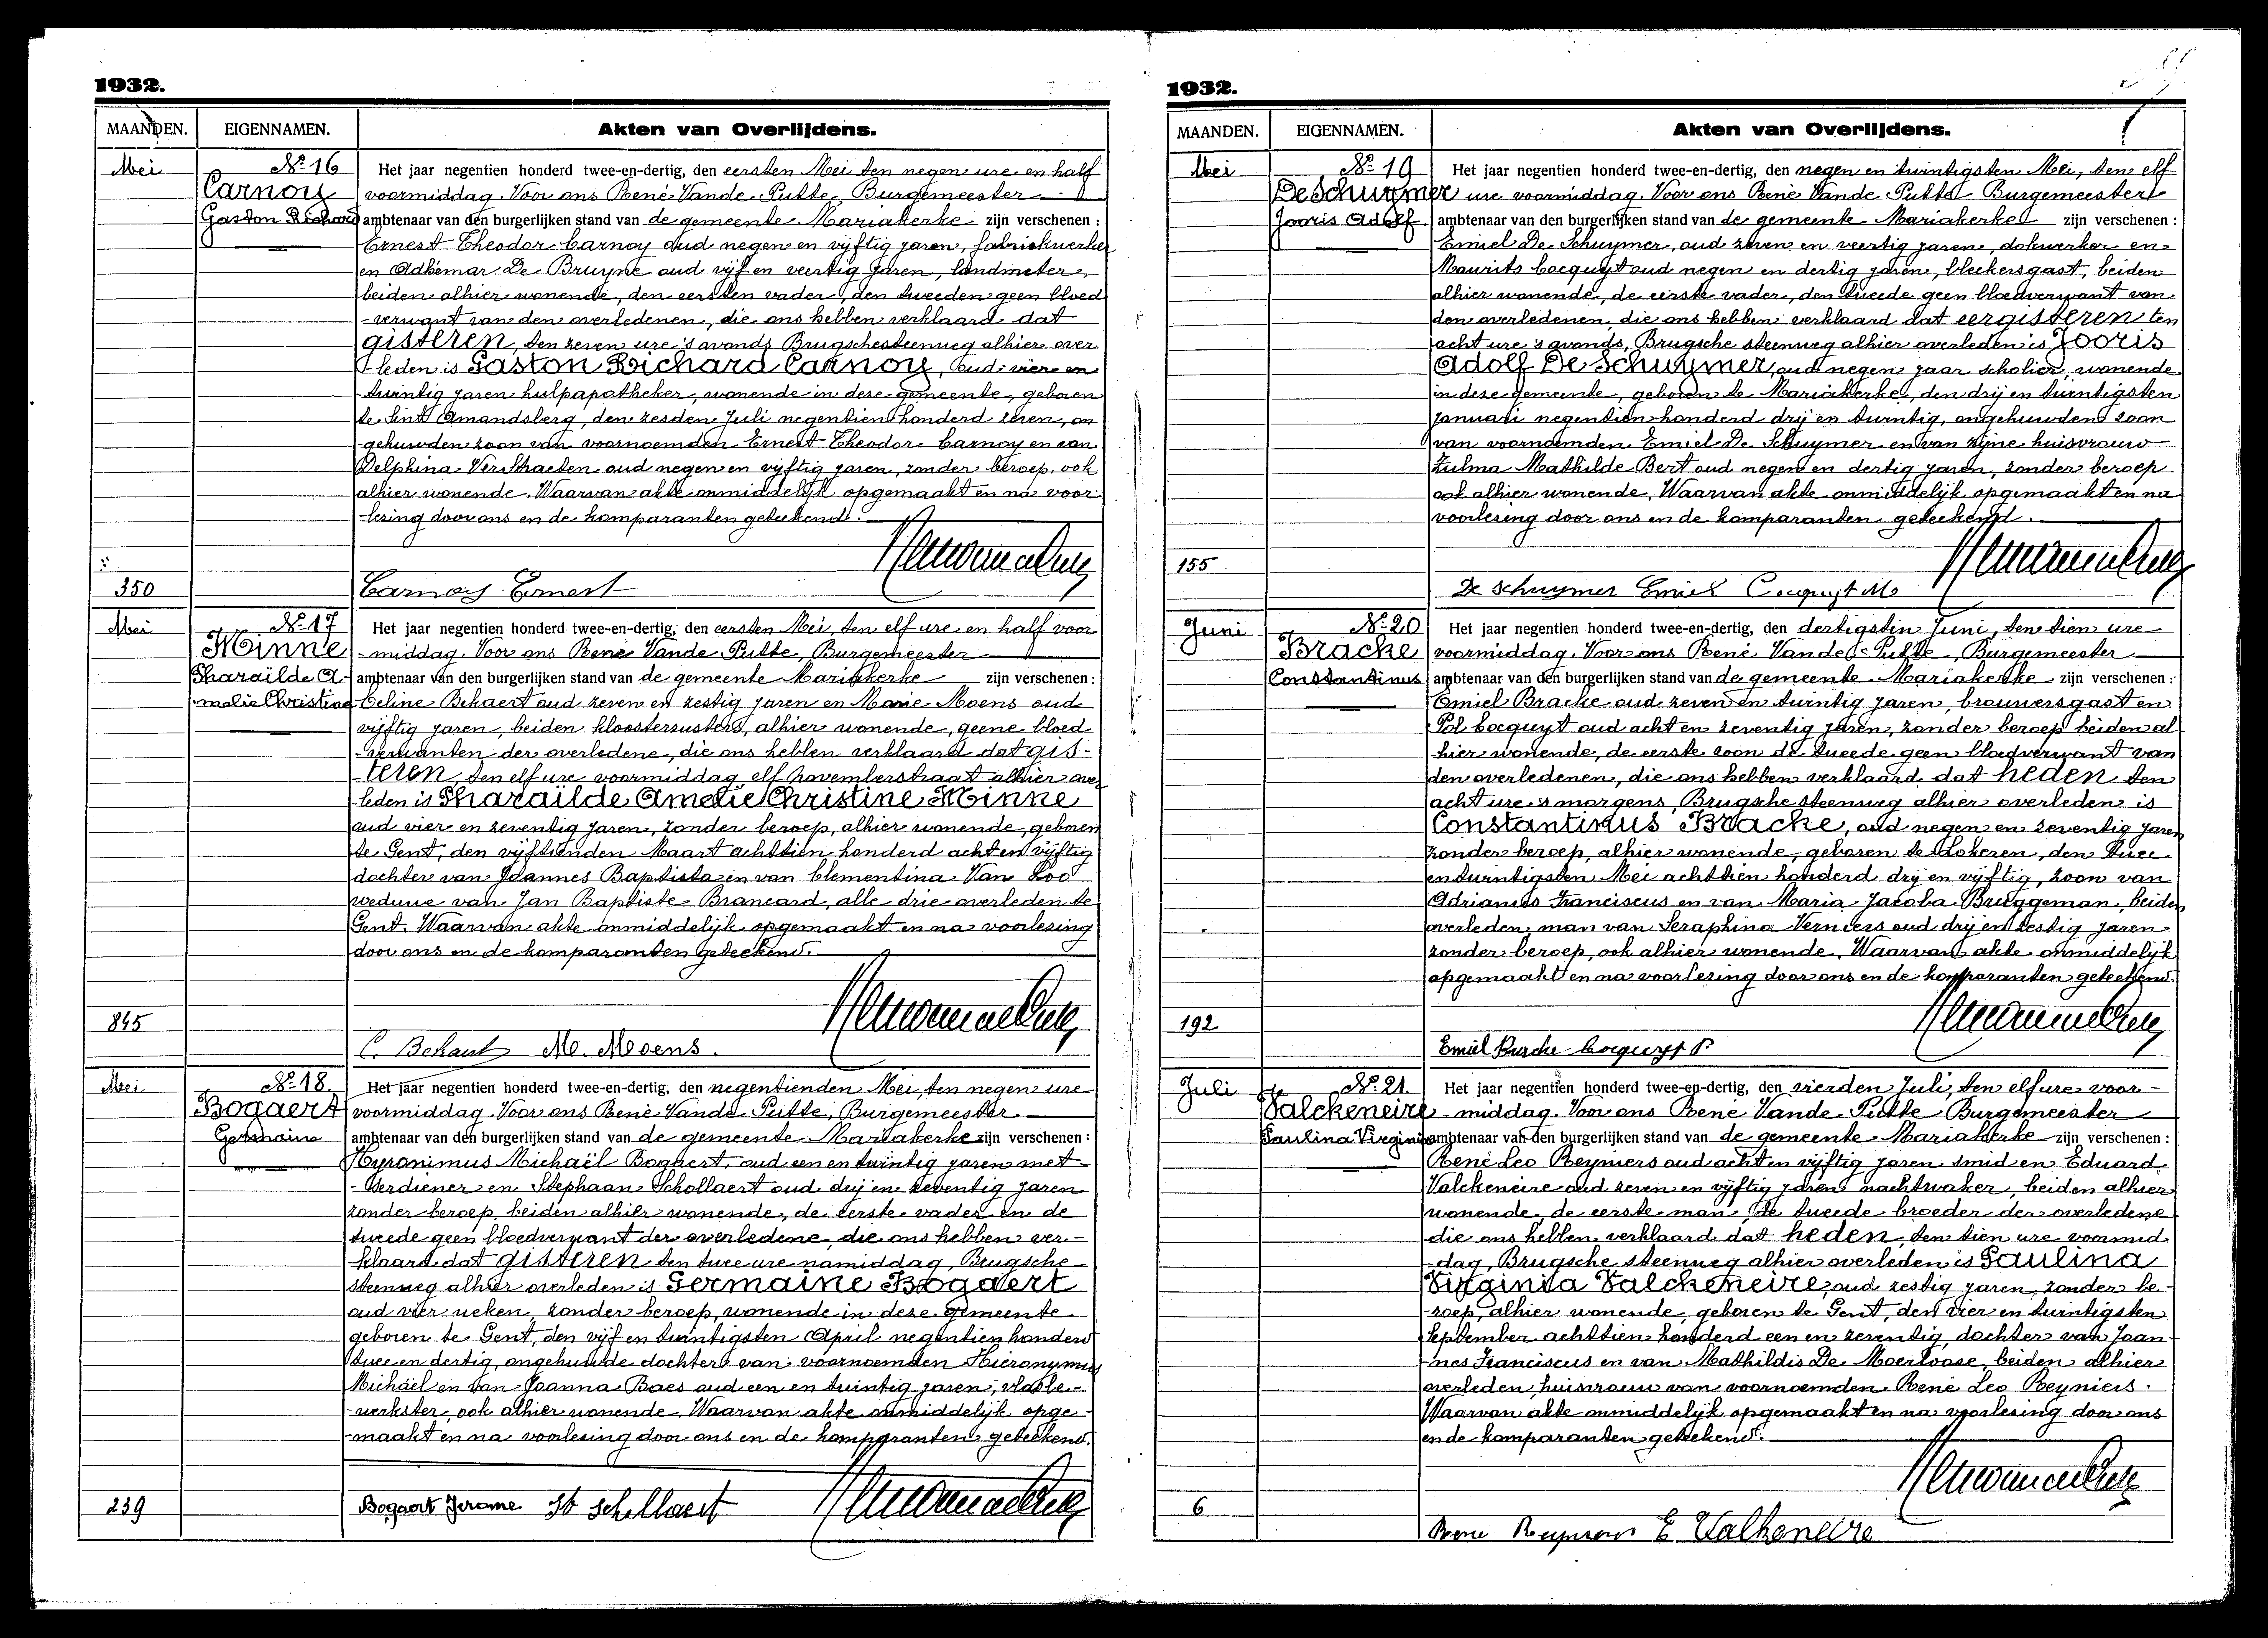 1932.
MAANDEN. EIGENNAMEN. Akten van Overlijdens.
Mei No 16 Het jaar negentien honderd twee-en-dertig, den eersten Mei ten negen ure en half
Carnoy voormiddag. Voor ons René Vande Putte, Burgemeester
Gaston Richard ambtenaar van den burgerlijken stand van de gemeente Mariakerke zijn verschenen :
Ernest Theodor Carnoy oud negen en vijftig jaren, fabriekwerker
en Adhemar De Bruyne oud vijf en veertig jaren, landmeter,
beiden alhier wonende, den eersten vader, den tweeden geen bloed
-verwant van den overledenen, die ons hebben verklaard dat
gisteren, ten zeven ure 's avonds Brugschesteenweg alhier over
-leden is Gaston Richard Carnoy, oud vier en
twintig jaren hulpapotheker, wonende in deze gemeente, geboren
te Sint Amandsberg, den zesden Juli negentien honderd zeven, on
-gehuwden zoon van voornoemden Ernest Theodor Carnoy en van
Delphina Verstraeten oud negen en vijftig jaren, zonder beroep, ook
alhier wonende. Waarvan akte onmiddelijk opgemaakt en na voor
-lezing door ons en de komparanten geteekend.
350 Carnoy Ernest
Mei No 17 Het jaar negentien honderd twee-en-dertig, den eersten Mei, ten elf ure en half voor
Minne -middag. Voor ons René Vande Putte, Burgemeester
Pharaïlde A- ambtenaar van den burgerlijken stand van de gemeente Mariakerke zijn verschenen :
malie Christine Celine Behaert oud zeven en zestig jaren en Marie Moens oud
vijftig jaren, beiden kloosterzusters, alhier wonende, geene bloed
-verwanten der overledene, die ons hebben verklaard dat gis-
teren, ten elf ure voormiddag elf novemberstraat alhier over
leden is Pharaïlde Amelie Christine Minne
oud vier en zeventig jaren, zonder beroep, alhier wonende, geboren
te Gent, den vijftienden Maart achttien honderd acht en vijftig
dochter van Joannes Baptista en van Clementina Van Loo
weduwe van Jan Baptiste Brancard, alle drie overleden te
Gent. Waarvan akte onmiddelijk opgemaakt en na voorlezing
door ons en de komparanten geteekend.
845 C. Behaert M. Moens.
Mei No 18. Het jaar negentien honderd twee-en-dertig, den negentienden Mei, ten negen ure
Bogaert voormiddag. Voor ons René Vande Putte, Burgemeester.
Germaine ambtenaar van den burgerlijken stand van de gemeente Mariakerke zijn verschenen :
Hyronimus Michaël Bogaert, oud een en twintig jaren met-
-serdiener en Stephaan Schollaert oud drij en zeventig jaren
zonder beroep, beiden alhier wonende, de eerste vader en de
tweede geen bloedverwant der overledene, die ons hebben ver-
klaard dat gisteren ten twee ure namiddag, Brugsche
steenweg alhier overleden is Germaine Bogaert
oud vier weken, zonder beroep, wonende in deze gemeente
geboren te Gent, den vijf en twintigsten April negentien honderd
twee en dertig, ongehuwde dochter van voornoemden Hieronymus
Michaël en van Joanna Baes oud een en twintig jaren, vlasbe-
-werkster, ook alhier wonende. Waarvan akte onmiddelijk opge-
-maakt en na voorlezing door ons en de komparanten geteekend.
239 Bogaert Jerome St Schollaert
1932.
MAANDEN. EIGENNAMEN. Akten van Overlijdens.
Mei No 19 Het jaar negentien honderd twee-en-dertig, den negen en twintigsten Mei, ten elf
De Schuymer ure voormiddag. Voor ons René Vande Putte Burgemeester
Jooris Adolf ambtenaar van den burgerlijken stand van de gemeente Mariakerke zijn verschenen :
Emiel De Schuymer, oud zeven en veertig jaren, dokwerker en
Maurits Cocquyt oud negen en dertig jaren, bleekersgast, beiden
alhier wonende, de eerste vader, den tweede geen bloedverwant van
den overledenen, die ons hebben verklaard dat eergisteren ten
acht ure 's avonds, Brugsche steenweg alhier overleden is Jooris
Adolf De Schuymer, oud negen jaar scholier, wonende
in deze gemeente, geboren te Mariakerke, den drij en twintigsten
Januari negentien honderd drij en twintig, ongehuwden zoon
van voornoemden Emiel De Schuymer en van zijne huisvrouw
Zulma Mathilde Bert oud negen en dertig jaren, zonder beroep
ook alhier wonende. Waarvan akte onmiddelijk opgemaakt en na
voorlezing door ons en de komparanten geteekend.
155 De Schuymer Emiel Cocquyt M
Juni No 20 Het jaar negentien honderd twee-en-dertig, den dertigsten Juni, ten tien ure
Bracke voormiddag. Voor ons René Vande Putte, Burgemeester
Constantinus ambtenaar van den burgerlijken stand van de gemeente Mariakerke zijn verschenen :
Emiel Bracke oud zeven en twintig jaren, brouwersgast en
Pol Cocquyt oud acht en zeventig jaren, zonder beroep beiden al
-hier wonende, de eerste zoon de tweede geen bloedverwant van
den overledenen, die ons hebben verklaard dat heden ten
acht ure 's morgens, Brugsche steenweg alhier overleden is
Constantinus Bracke, oud negen en zeventig jaren
zonder beroep, alhier wonende, geboren te Lokeren, den twee
en twintigsten Mei achttien honderd drij en vijftig, zoon van
Adrianus Franciscus en van Maria Jacoba Bruggeman, beiden
overleden, man van Seraphina Verniers oud drij en zestig jaren
zonder beroep, ook alhier wonende. Waarvan akte onmiddelijk
opgemaakt en na voorlezing door ons en de komparanten geteekend.
192 Emiel Bracke Cocquyt P.
Juli No 21. Het jaar negentien honderd twee-en-dertig, den vierden Juli, ten elf ure voor-
Valckeneire -middag. Voor ons René Vande Putte Burgemeester
Paulina Virginia ambtenaar van den burgerlijken stand van de gemeente Mariakerke zijn verschenen :
René Leo Reyniers oud acht en vijftig jaren smid en Eduard
Valckeneire oud zeven en vijftig jaren nachtwaker, beiden alhier
wonende, de eerste man, de tweede broeder der overledene
die ons hebben verklaard dat heden, ten tien ure voormid
-dag, Brugsche steenweg alhier overleden is Paulina
Virginia Valckeneire, oud zestig jaren, zonder be-
-roep, alhier wonende, geboren te Gent, den vier en twintigsten
September achttien honderd een en zeventig, dochter van Joan-
-nes Franciscus en van Mathildis De Moerloose, beiden alhier
overleden, huisvrouw van voornoemden René Leo Reyniers.
Waarvan akte onmiddelijk opgemaakt en na voorlezing door ons
en de komparanten geteekend.
6 Rene Reyniers E Valkeneire